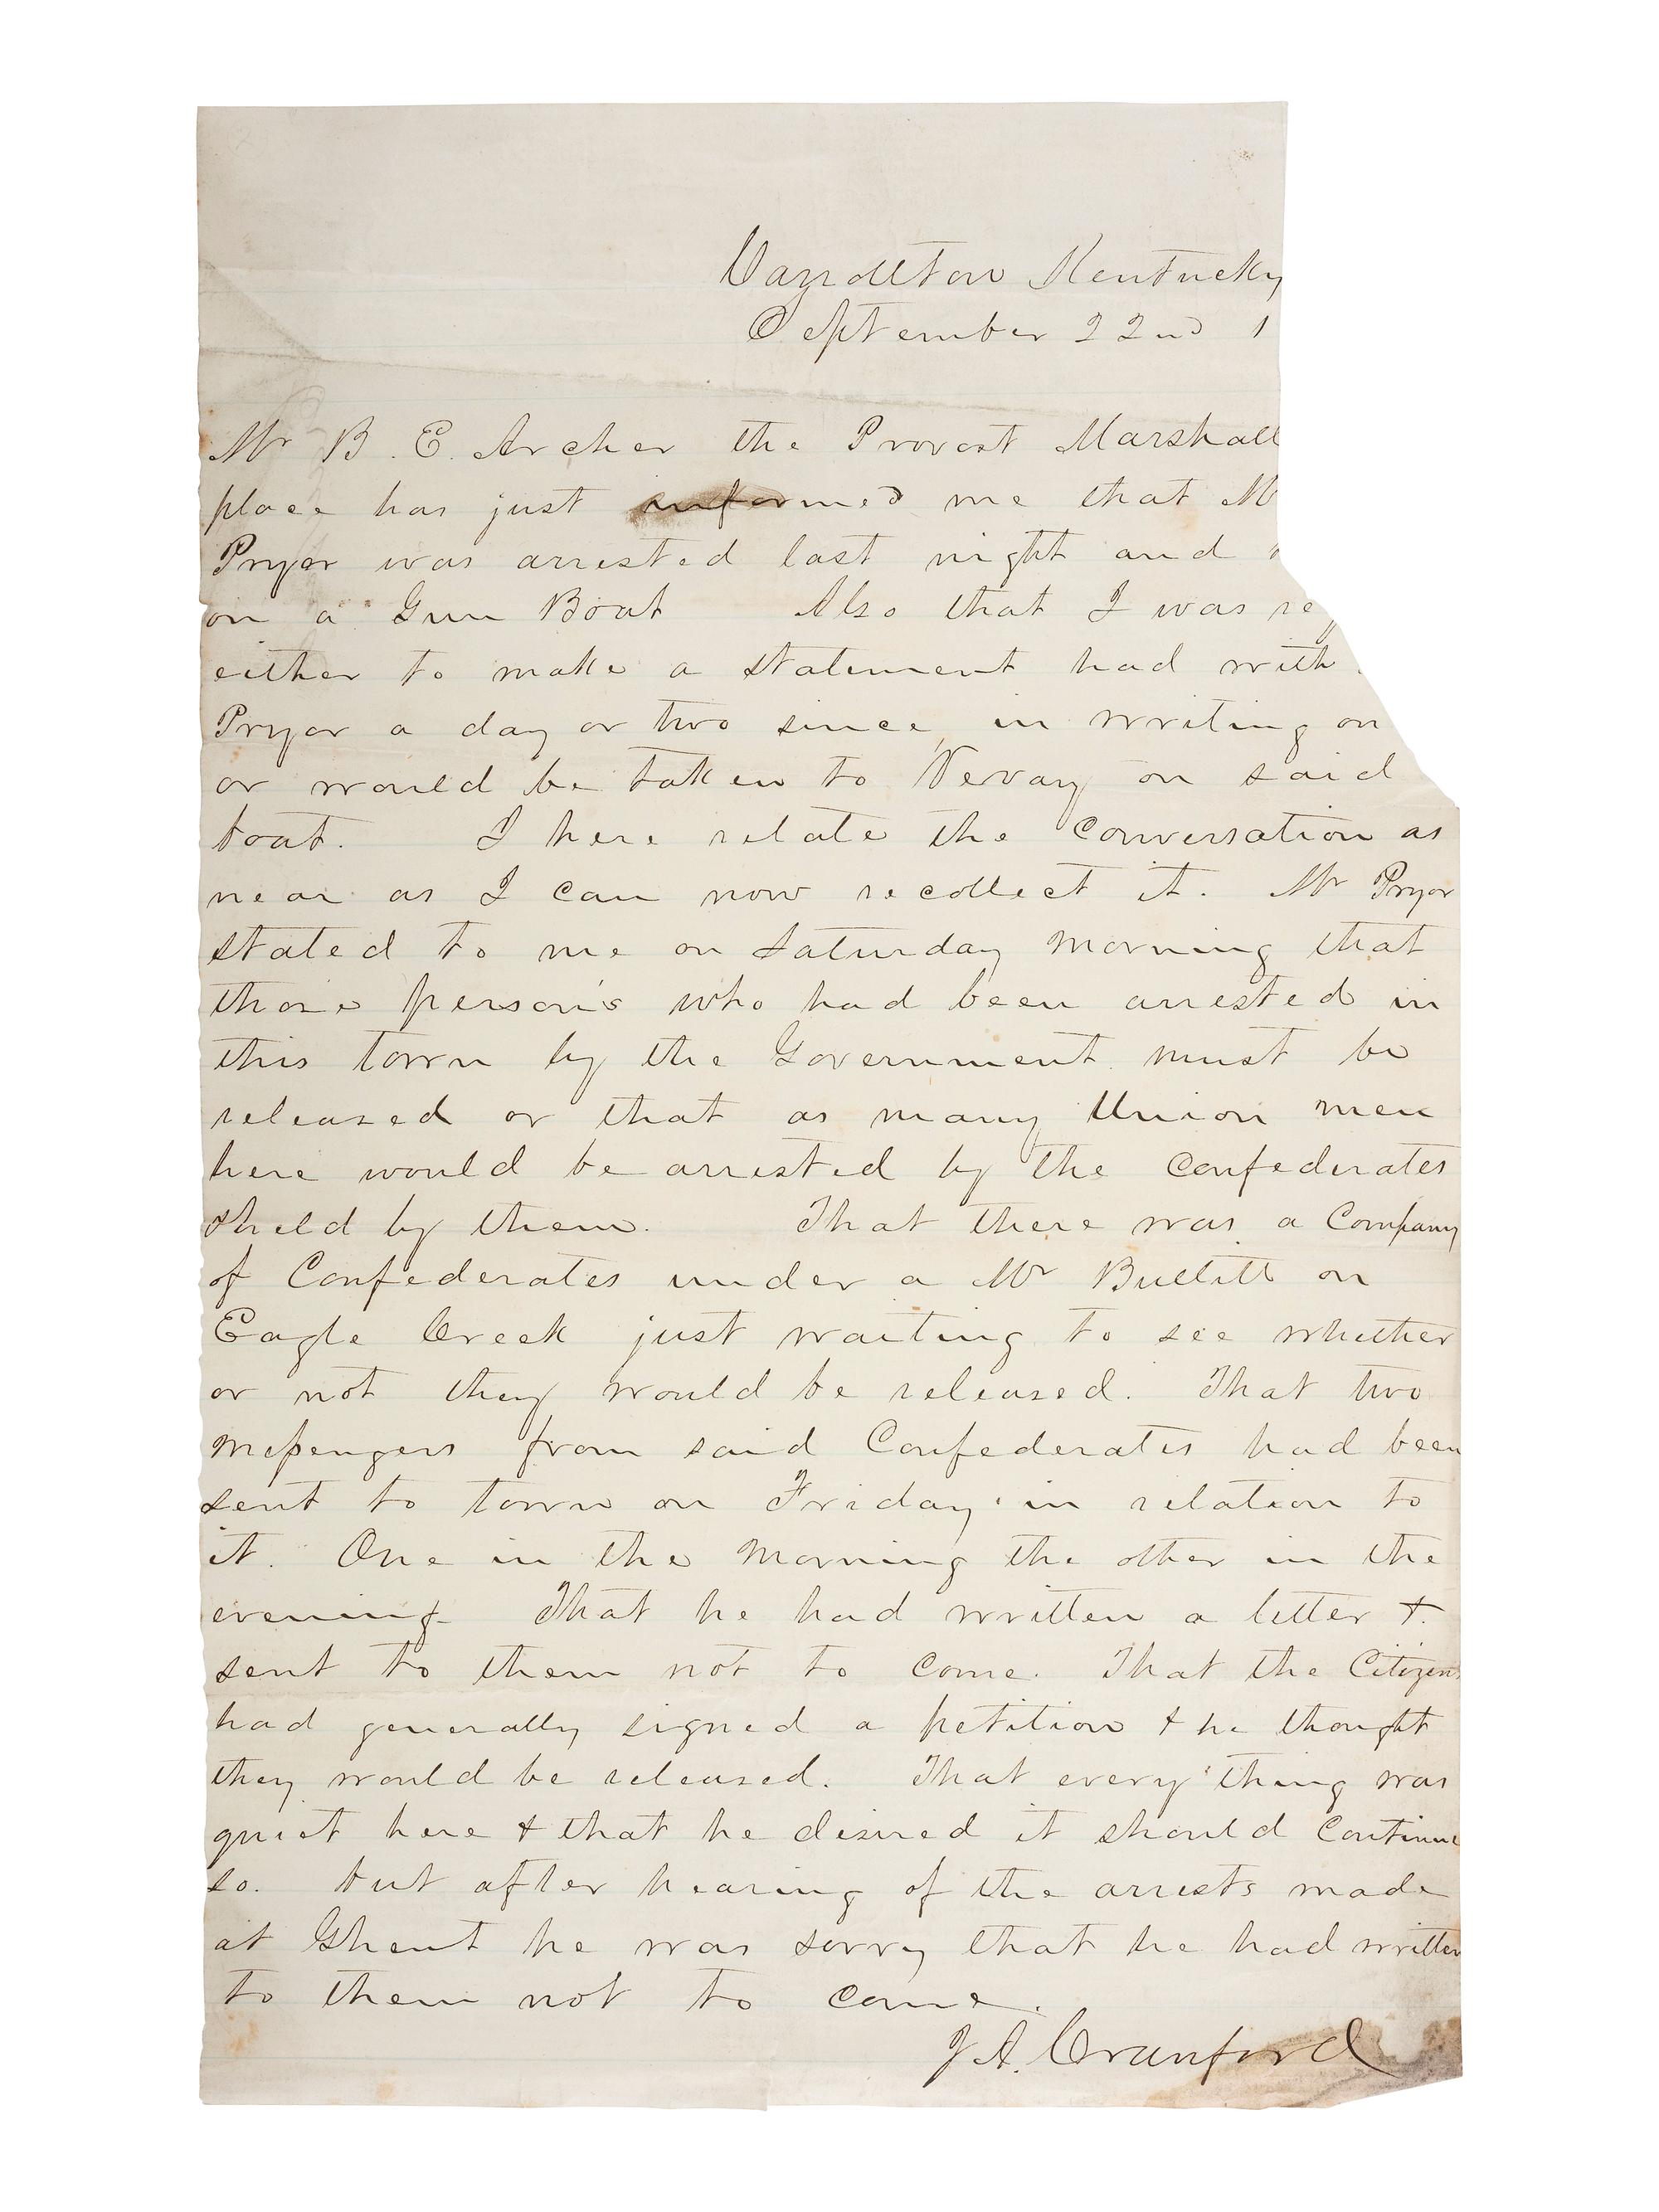 Carrollton Kentucky
September 22nd 1
Mr B. E. Archer the Provost Marshall
place has just informed me that M
Pryor was arrested last night and
on a Gun Boat Also that I was re
either to make a statement had with
Pryor a day or two since in writing on
or would be taken to Vevay on said
boat. I here relate the conversation as
near as I can now recollect it. Mr Pryor
stated to me on Saturday morning that
those person's who had been arrested in
this town by the Government must be
released or that as many Union men
here would be arrested by the Confederates
&held by them. That there was a Company
of Confederates under a Mr Bullitt on
Eagle Creek just waiting to see whether
or not they would be released. That two
messengers from said Confederates had been
sent to town on Friday in relation to
it. One in the morning the other in the
evening That he had written a letter &
sent to them not to come. That the Citizens
had generally signed a petition & he thought
they would be released. That every thing was
quiet here & that he desired it should Continue
so. but after hearing of the arrests made
at Ghent he was sorry that he had written
to them not to come.
J. A. Crawford